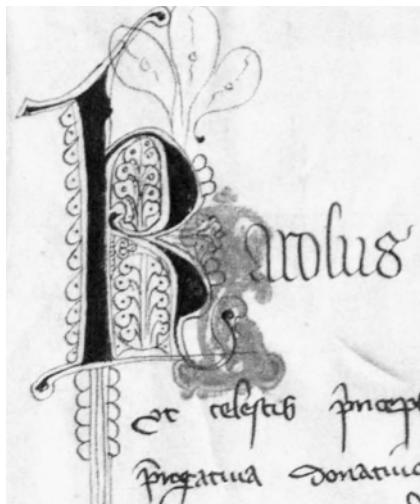 Karolus
Et celestis princep
prerogatiua donatiuo